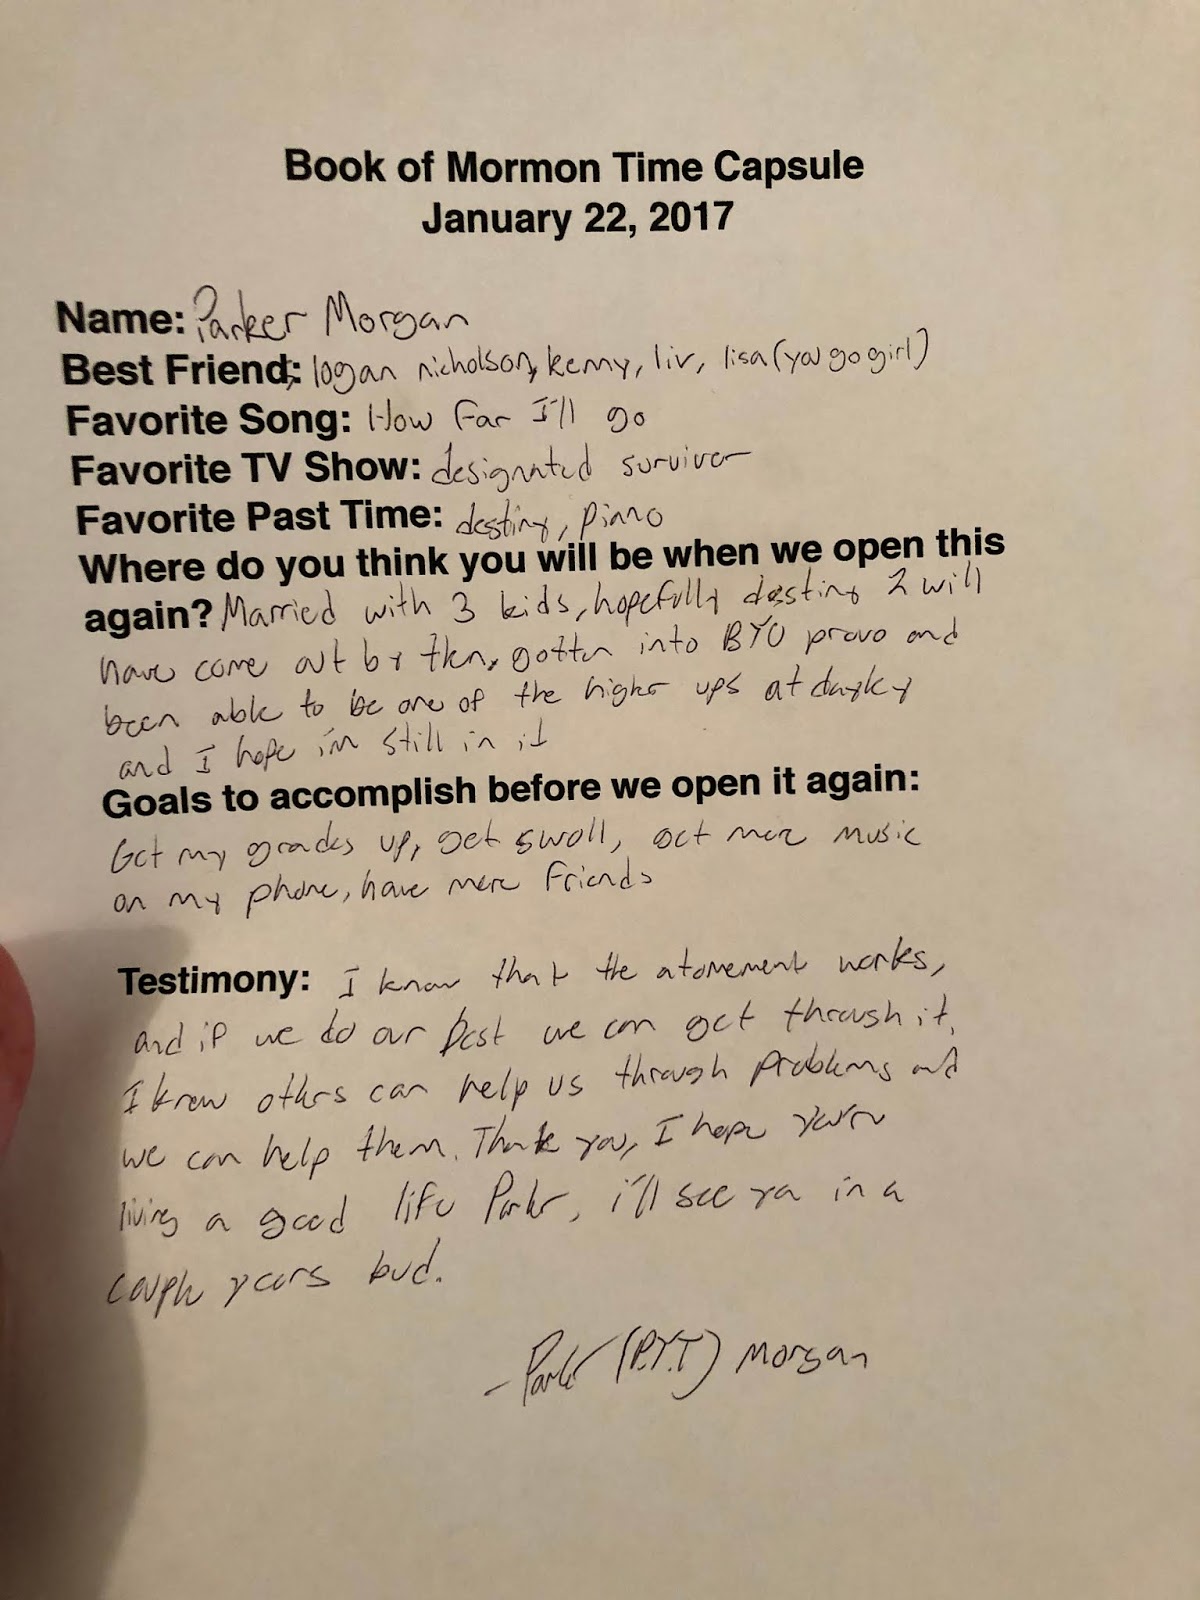 Book of Mormon Time Capsule
January 22, 2017
Name: Parker Morgan
Best Friend: logan nicholson, kenny, liv, lisa (you go girl)
Favorite Song: How far I'll go
Favorite TV Show: designated survivor
Favorite Past Time: destiny, piano
Where do you think you will be when we open this
again? Married with 3 kids, hopefully destiny 2 will
have come out by then, gotten into BYU provo and
been able to be one of the higher ups at
and I hope i'm still in it
Goals to accomplish before we open it again:
Get my grades up, get swoll, get more music
on my phone, have more friends
Testimony: I know that the atonement works,
and if we do our best we can get through it.
I know others can help us through problems and
we can help them. Thank you, I hope your
living a good life Parker, i'll see ya in a
couple years bud.
- Parker (P.Y.T) Morgan